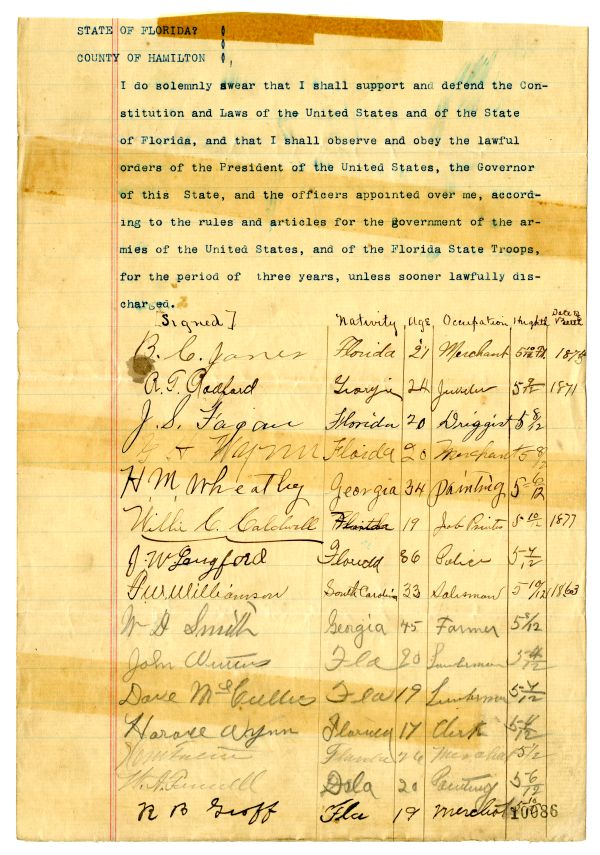 STATE OF FLORIDA?
COUNTY OF HAMILTON
I do solemnly swear that I shall support and defend the Con-
stitution and Laws of the United States and of the State
of Florida, and that I shall observe and obey the lawful
orders of the President of the United States, the Governor
of this State, and the officers appointed over me, accord-
ing to the rules and articles for the government of the ar-
mies of the United States, and of the Florida State Troops,
for the period of three years, unless sooner lawfully dis-
charged.
Signed] Nativity, Age, Occupation, Hught Date of
B. C. Jones Florida 21 Merchant 5 10/12 1874
R. T. Radford Georgia 24 Juweler 5 9/12 1871
J. S. Fagan Florida 20 Driggist 5 8/12
Wynn Floida 20 Merchant 5 8/12
H M Wheatley Georgia 34 painting 5 6/12
Willie C. Caldwell Florida 19 Job Printer 5 10/12 1877
J. W Langford Florida 36 Police 5 7/12
Williamson South Carolina 33 Salesman 5 10/12 1863
W D Smith Georgia 45 Farmer 5 8/12
John Fla 20 Lumberman 5 4/12
Dave Fla 19 Lumberman 5 7/12
Horace Wynn 17 Clerk 5 4/12
Florida 26 5 1/2
Dela 20 Painting 5 6/12
R B Groff Fla 19 Merchant 5 10/12
10086